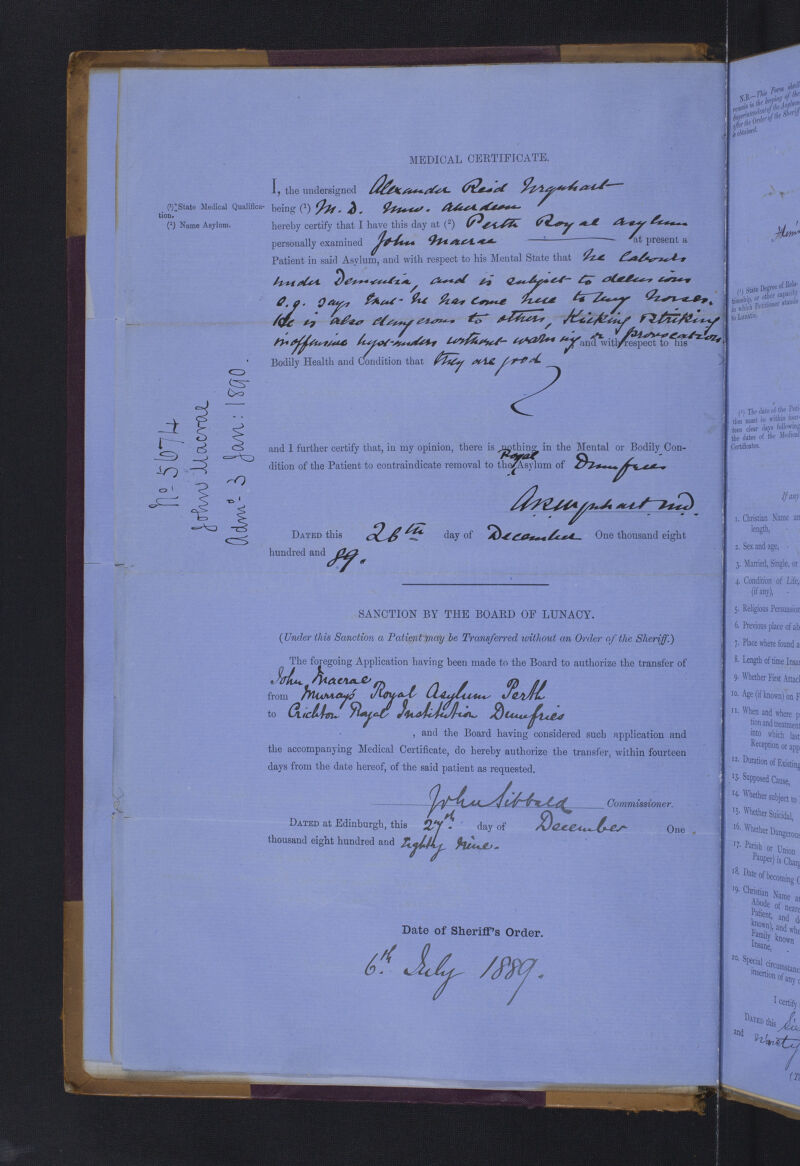 MEDICAL CERTIFICATE.
I, the undersigned Alexander Reid Urquhart
(1) State Medical Qualifica-
tion.
being (1) M. D. Univ. Aberdeen
(2) Name Asylum.
hereby certify that I have this day at (2) Perth Royal Asylum
personally examined John Macrae at present a
Patient in said Asylum, and with respect to his Mental State that he labours
under Dementia, and is subject to delusions
e.g. says that he has come here to buy horses.
He is also dangerous to others, kicking & striking
inoffensive bystanders without warning or provocation
and with respect to his
Bodily Health and Condition that they are good
and I further certify that, in my opinion, there is nothing in the Mental or Bodily Con-
dition of the Patient to contraindicate removal to the Royal Asylum of Dumfries
A R Urquhart M.D.
DATED this 26th day of December One thousand eight
hundred and 89.
No 5674
John Macrae
Admd 3 Jan: 1890.
SANCTION BY THE BOARD OF LUNACY.
(Under this Sanction a Patient may be Transferred without an Order of the Sheriff.)
The foregoing Application having been made to the Board to authorize the transfer of
John Macrae
from Murray's Royal Asylum Perth
to Crichton Royal Institution Dumfries
, and the Board having considered such application and
the accompanying Medical Certificate, do hereby authorize the transfer, within fourteen
days from the date hereof, of the said patient as requested.
John Sibbald Commissioner.
DATED at Edinburgh, this 27th. day of December One
thousand eight hundred and Eighty nine.
Date of Sheriff's Order.
6th. July 1889.
N.B.—This Form
remain in the keeping of the
Superintendent of the Asylum
after the Order of the Sheriff
is obtained.
(1) State Degree of Rela-
tionship, or other capacity
in which Petitioner stands
to Lunatic.
(1) The date of the Peti-
tion must be within four-
teen clear days following
the dates of the Medical
Certificates.
If any
1. Christian Name
length,
2. Sex and age,
3. Married, Single, or
4. Condition of Life,
(if any),
5. Religious Persuasion
6. Previous place of
7. Place where found
8. Length of time
9. Whether First Attack
10. Age (if known) on
11. When and where
tion and treatment
into which last
Reception or
12. Duration of Existing
13. Supposed Cause,
14. Whether subject to
15. Whether Suicidal,
16. Whether Dangerous
17. Parish or Union
Pauper) is
18. Date of becoming
19. Christian Name
Abode of
Patient, and
known), and
Family known
Insane,
20. Special
insertion of any
I certify
DATED this
and